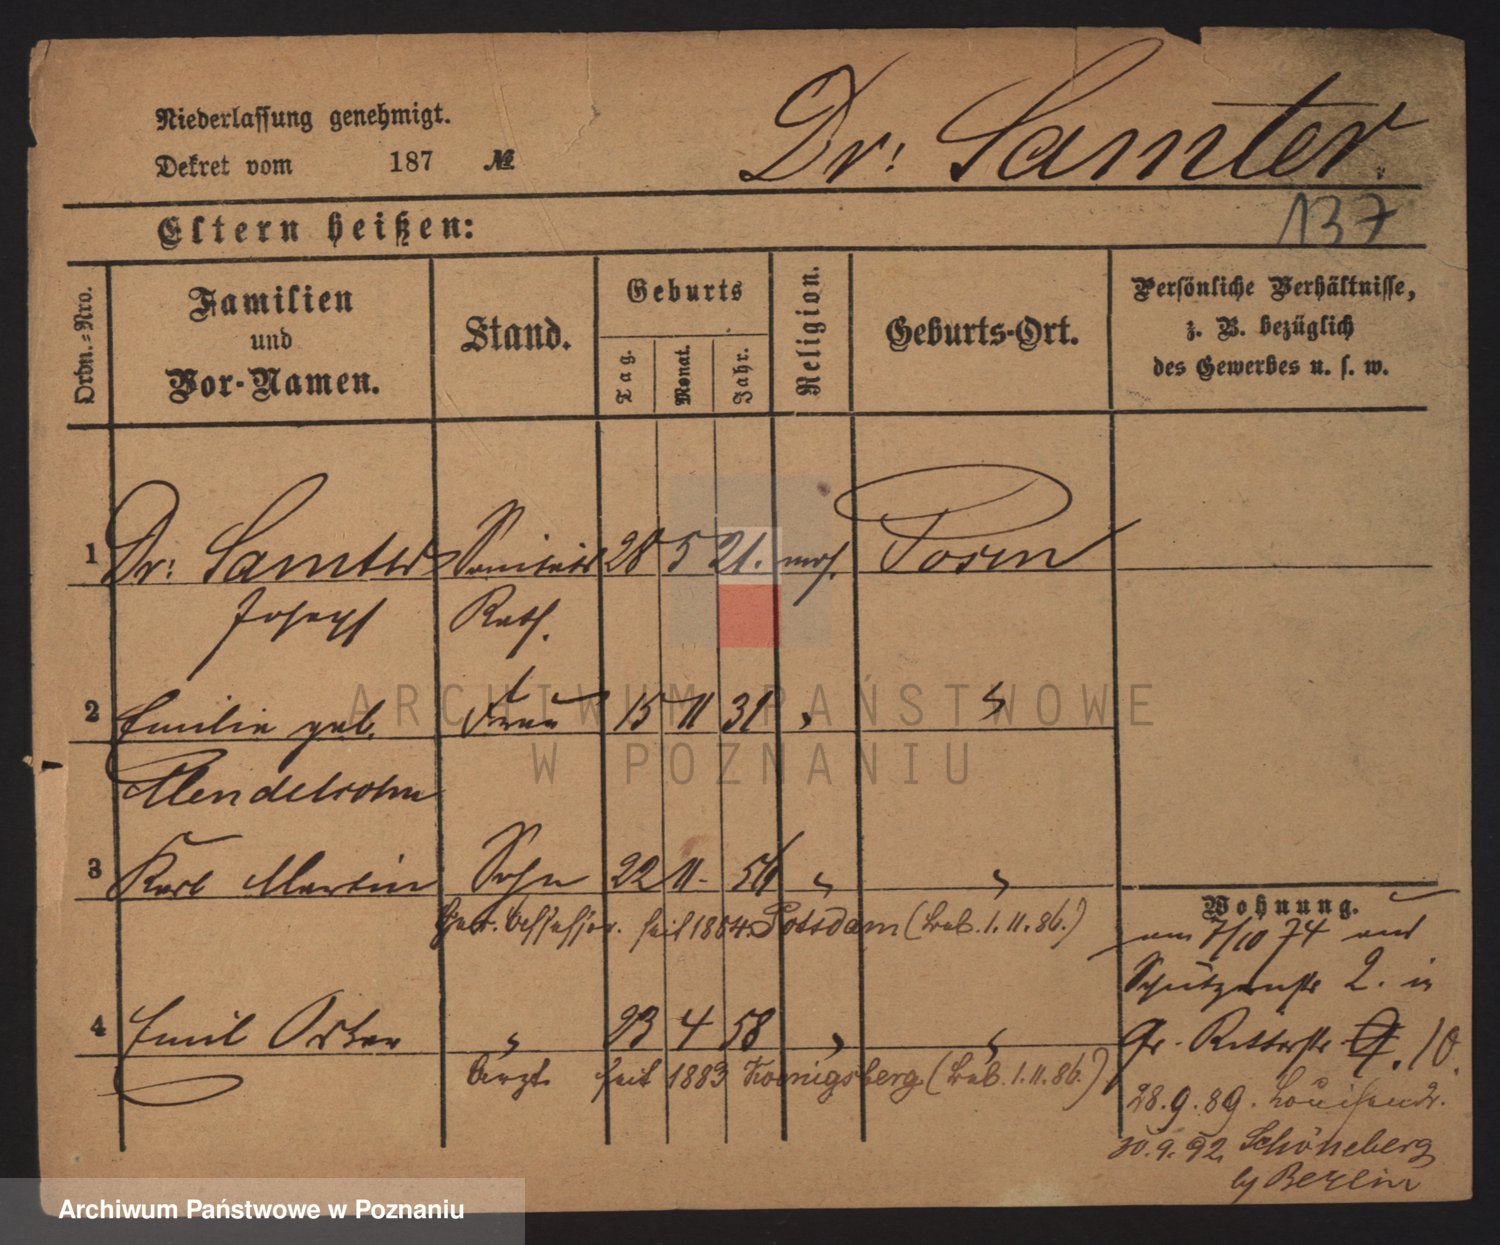 Niederlassung genehmigt.
Dekret vom 187 №
Dr. Samter.
137
Eltern heißen:
Ordn.-Nro.
Familien und Vor-Namen.
Stand.
Geburts
Tag.
Monat.
Jahr.
Religion.
Geburts-Ort.
Persönliche Verhältnisse,
z. B. bezüglich
des Gewerbes u. s. w.
1 Dr. Samter Sanitäts 28 5 21. mos. Posen
Joseph Rath.
2 Emilie geb. Frau 15 11 31 " "
Mendelsohn
3 Karl Martin Sohn 22 11 56 " "
Ger. Assessor. seit 1884. Potsdam (Reb. 1.11.86.)
4 Emil Oskar " 23 4 58 " "
Arzt seit 1883 Koenigsberg (Reb. 1.11.86.)
Wohnung.
am 7/10 74 aus
Schützenstr 2. in
Gr. Ritterstr 10.
28.9.89. Louisenstr.
30.9.92 Schöneberg
b/ Berlin
ARCHIWUM PAŃSTWOWE
W POZNANIU
Archiwum Państwowe w Poznaniu